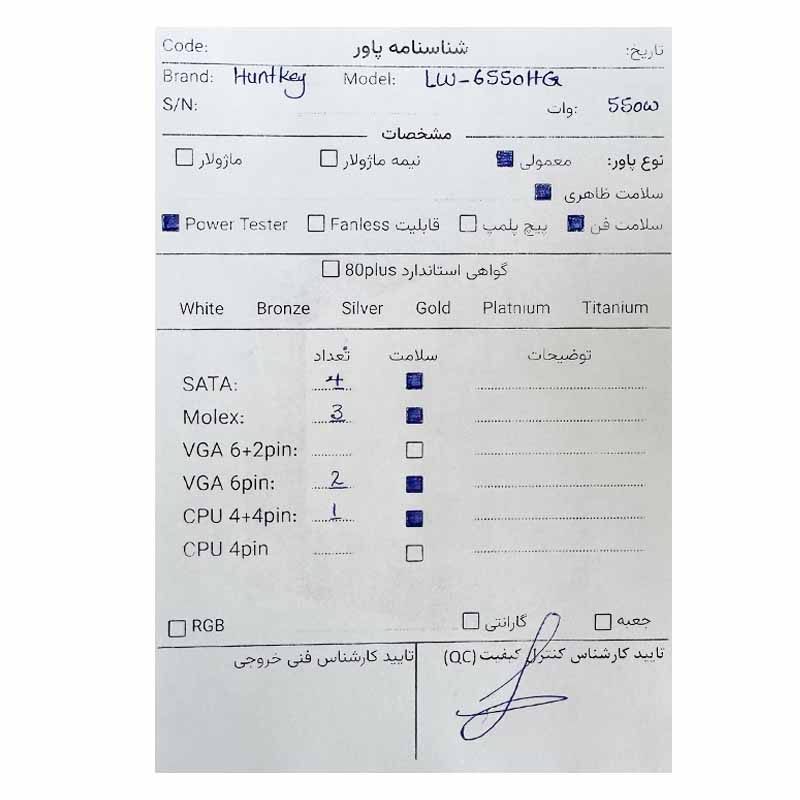 Code: شناسنامه پاور تاریخ:
Brand: Huntkey Model: LW-6550HG
S/N: وات: 550W
مشخصات
نوع پاور: معمولی نیمه ماژولار ماژولار
سلامت ظاهری
سلامت فن پیچ پلمپ قابلیت Fanless Power Tester
گواهی استاندارد 80plus
White Bronze Silver Gold Platnium Titanium
تعداد سلامت توضیحات
SATA: 4
Molex: 3
VGA 6+2pin:
VGA 6pin: 2
CPU 4+4pin: 1
CPU 4pin
RGB گارانتی جعبه
تایید کارشناس کنترل کیفیت (QC) تایید کارشناس فنی خروجی